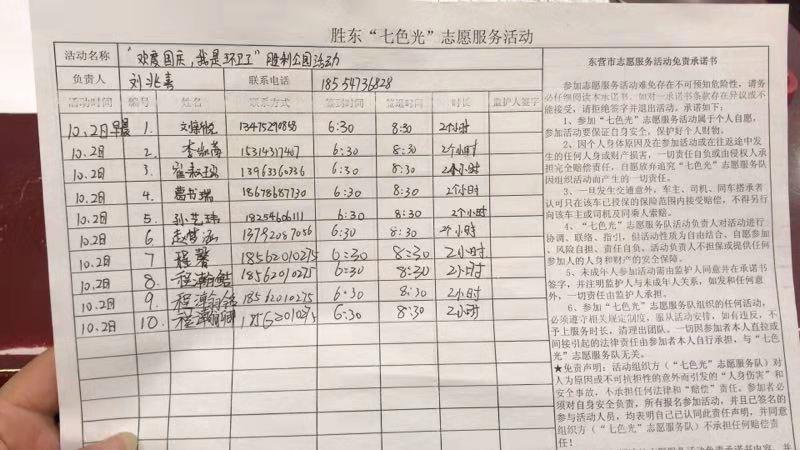 胜东“七色光”志愿服务活动
活动名称 “欢度国庆,我是环卫工”胜利公园活动
负责人 刘兆喜 联系电话 18554736828
活动时间 编号 姓名 联系方式 签到时间 签退时间 时长 监护人签字
10.2日早晨 1. 6:30 8:30 2个小时
10.2日 2. 15314317407 6:30 8:30 2个小时
10.2日 3. 13963360336 6:30 8:30 2个小时
10.2日 4. 葛书瑞 18678687730 6:30 8:30 2个小时
10.2日 5. 孙艺玮 18254606111 6:30 8:30 2个小时
10.2日 6 赵梦涵 13792087056 6:30 8:30 2个小时
10.2日 7 程馨 18562010275 6:30 8:30 2小时
10.2日 8. 18562010275 6:30 8:30 2小时
10.2日 9. 18562010275 6:30 8:30 2小时
10.2日 10. 18562010275 6:30 8:30 2小时
东营市志愿服务活动免责承诺书
参加志愿服务活动难免存在不可预知危险性,请务
必仔细阅读本承诺书,如对一承诺书条款存在异议或不
能接受,请拒绝签字并退出活动。承诺如下:
1、参加“七色光”志愿服务活动属于个人自愿,
参加活动要保证自身安全,保护好个人财物。
2、因个人身体原因及在参加活动或在往返途中发
生的任何人身或财产损害,一切责任自负或由侵权人承
担完全赔偿责任,自愿放弃追究“七色光”志愿服务队
因组织活动而产生的一切责任。
3、一旦发生交通意外,车主、司机、同车搭乘者
认可只在该车已投保的保险范围内接受赔偿,不得另行
向该车主或司机及同乘人索赔。
4、“七色光”志愿服务队活动负责人对活动进行
协调、联络、指引,但活动性质为自由结合、自愿参加
、风险自担、责任自负。活动负责人不担保或提供任何
参加人的人身和财产的安全保障。
5、未成年人参加活动需由监护人同意并在承诺书
签字,并注明监护人与未成年人关系,如发和任何意
外,一切责任由监护人承担。
6、参加“七色光”志愿服务队组织的任何活动,
必须遵守相关规定制度,服从活动安排,如有违反,不
予上服务时长,清理出团队。一切因参加者本人直拉或
间接引起的法律责任由参加者本人自行承担,与“七
色光”志愿服务队无关。
★免责声明:活动组织方(“七色光”志愿服务队)对
人为原因或不可抗拒性的意外而引发的“人身伤害”和
安全事故,不承担任何法律和“赔偿”责任。参加者必
须对自身安全负责,所有报名参加活动,并且已签名的
参与活动人员,均表明自己已认同此责任声明,并同意
组织方(“七色光”志愿服务队)不承担任何赔偿责
任!